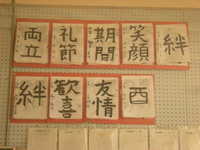 両立
礼節
期間
笑顔
絆
絆
歓喜
友情
酉